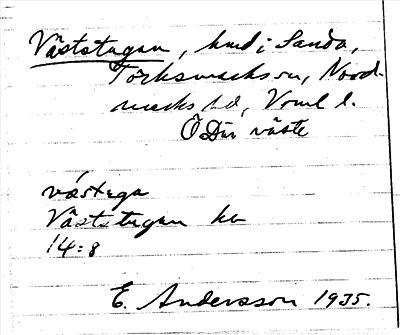 Väststugan, hmd i Sanda,
Torksmacks sn, Nord-
marks hd, Vrml l.
ÖDir väste
västega
Väststugan ha
14:8
E. Andersson 1935.